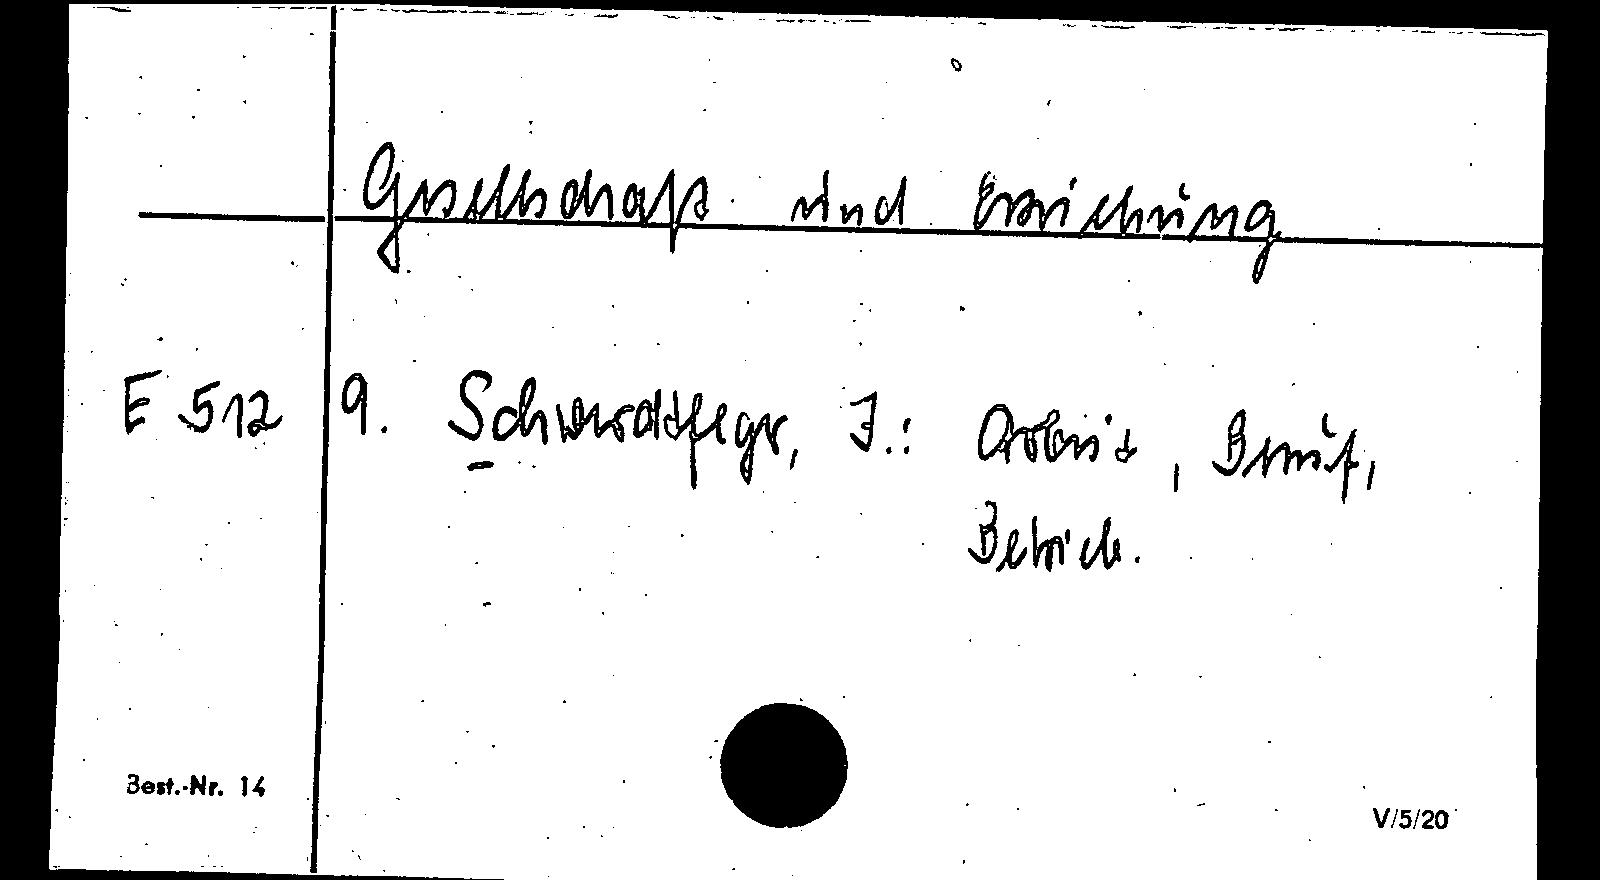 Gesellschaft und Erziehung
E 512 9. Schwerdtfeger, J.: Arbeit, Beruf,
Betrieb.
Best.-Nr. 14
V/5/20